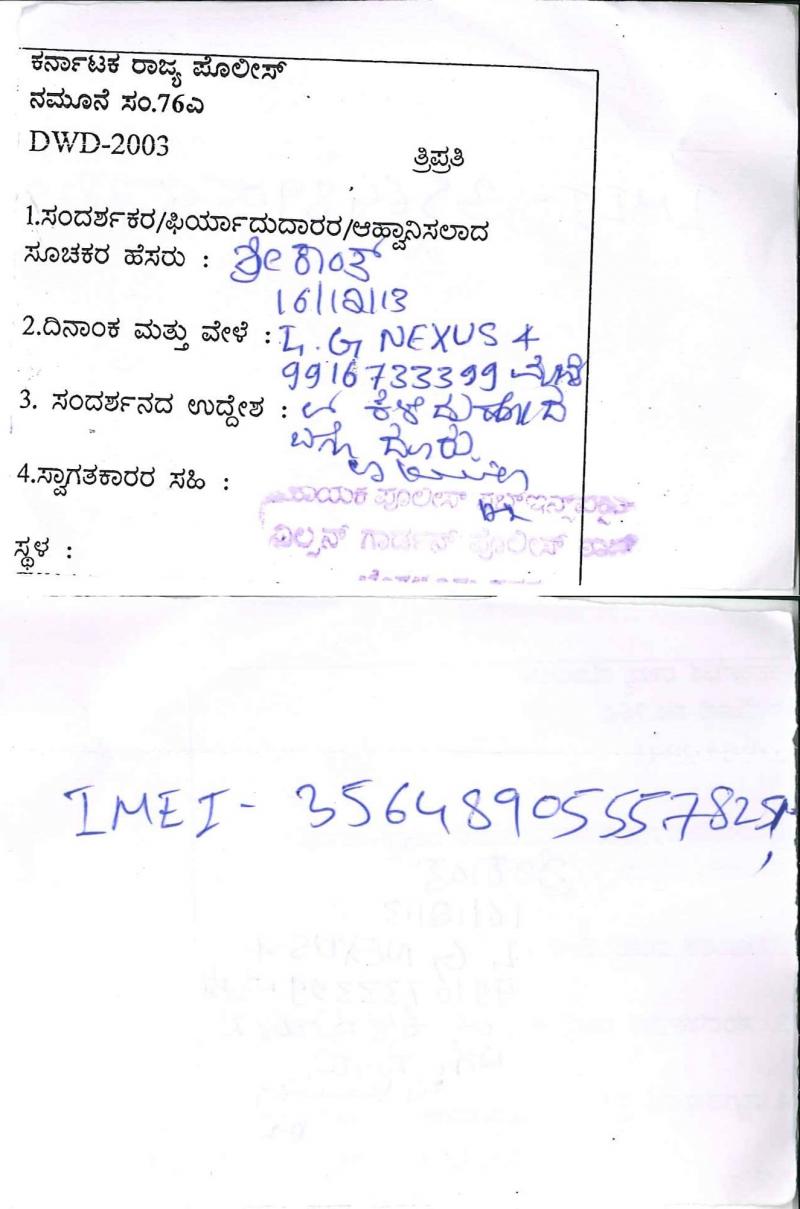 ಕರ್ನಾಟಕ ರಾಜ್ಯ ಪೊಲೀಸ್
ನಮೂನೆ ಸಂ.76ಎ
DWD-2003 ತ್ರಿಪ್ರತಿ
1.ಸಂದರ್ಶಕರ/ಫಿರ್ಯಾದುದಾರರ/ಆಹ್ವಾನಿಸಲಾದ
ಸೂಚಕರ ಹೆಸರು : ಶ್ರೀಕಾಂತ್
16/12/13
2.ದಿನಾಂಕ ಮತ್ತು ವೇಳೆ : L.G NEXUS 4
9916733399
3. ಸಂದರ್ಶನದ ಉದ್ದೇಶ : ಕಳೆದುಹೋದ
ಬಗ್ಗೆ ದೂರು
4.ಸ್ವಾಗತಕಾರರ ಸಹಿ :
ಸಹಾಯಕ ಪೊಲೀಸ್ ಸಬ್ ಇನ್ಸ್‌ಪೆಕ್ಟರ್
ವಿಲ್ಸನ್ ಗಾರ್ಡನ್ ಪೊಲೀಸ್ ಠಾಣೆ
ಸ್ಥಳ :
IMEI - 35648905557825